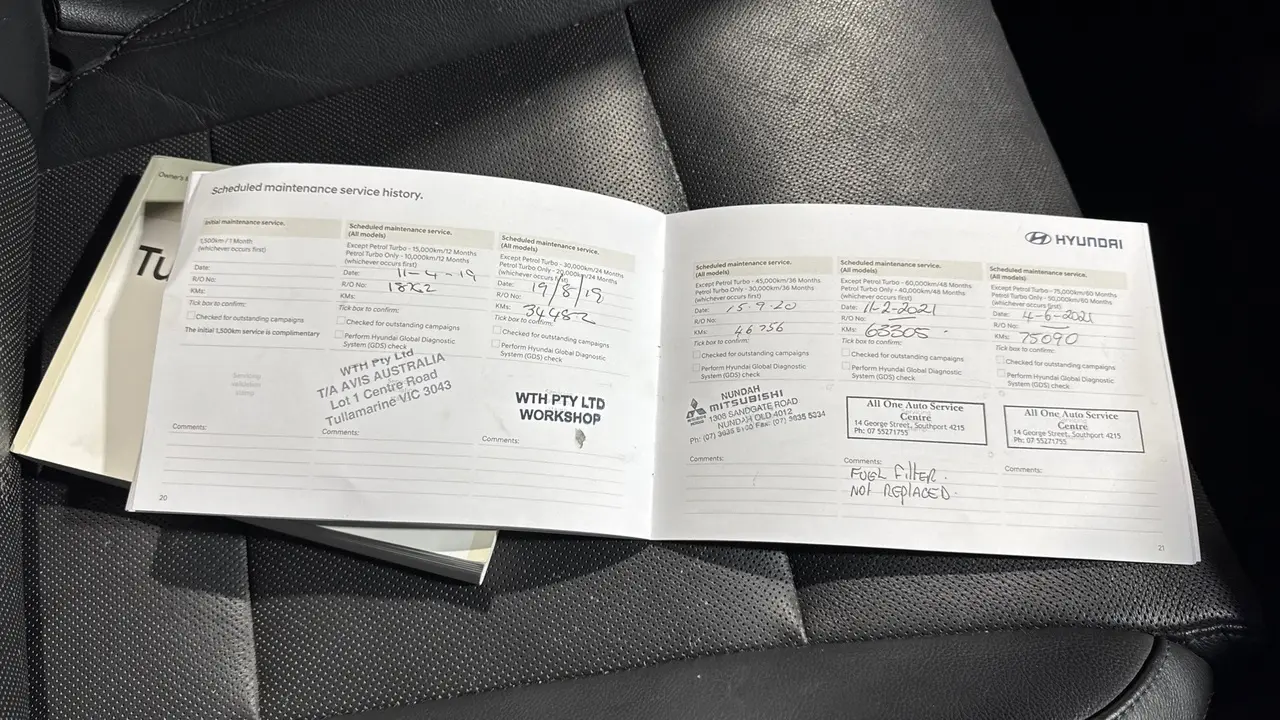 Owner's
Tu
Scheduled maintenance service history.
Initial maintenance service.
1,500km / 1 Month
(whichever occurs first)
Date:
R/O No:
KMs:
Tick box to confirm:
Checked for outstanding campaigns
The initial 1,500km service is complimentary
Servicing
dealership
stamp
Comments:
Scheduled maintenance service.
(All models)
Except Petrol Turbo - 15,000km/12 Months
Petrol Turbo Only - 10,000km/12 Months
(whichever occurs first)
Date: 11-4-19
R/O No:
KMs:
Tick box to confirm:
Checked for outstanding campaigns
Perform Hyundai Global Diagnostic
System (GDS) check
WTH Pty Ltd
T/A AVIS AUSTRALIA
Lot 1 Centre Road
Tullamarine VIC 3043
Comments:
Scheduled maintenance service.
(All models)
Except Petrol Turbo - 30,000km/24 Months
Petrol Turbo Only - 20,000km/24 Months
(whichever occurs first)
Date: 19/8/19
R/O No:
KMs: 34482
Tick box to confirm:
Checked for outstanding campaigns
Perform Hyundai Global Diagnostic
System (GDS) check
WTH PTY LTD
WORKSHOP
Comments:
20
HYUNDAI
Scheduled maintenance service.
(All models)
Except Petrol Turbo - 45,000km/36 Months
Petrol Turbo Only - 30,000km/36 Months
(whichever occurs first)
Date: 15-9-20
R/O No:
KMs: 46756
Tick box to confirm:
Checked for outstanding campaigns
Perform Hyundai Global Diagnostic
System (GDS) check
NUNDAH
MITSUBISHI
1306 SANDGATE ROAD
NUNDAH QLD 4012
Ph: (07) Fax: (07)
Comments:
Scheduled maintenance service.
(All models)
Except Petrol Turbo - 60,000km/48 Months
Petrol Turbo Only - 40,000km/48 Months
(whichever occurs first)
Date: 11-2-2021
R/O No:
KMs: 63305
Tick box to confirm:
Checked for outstanding campaigns
Perform Hyundai Global Diagnostic
System (GDS) check
All One Auto Service
Centre
14 George Street, Southport 4215
Ph: 07 55271755
Comments:
FUEL FILTER.
NOT REPLACED.
Scheduled maintenance service.
(All models)
Except Petrol Turbo - 75,000km/60 Months
Petrol Turbo Only - 50,000km/60 Months
(whichever occurs first)
Date: 4-6-2021
R/O No: —
KMs: 75090
Tick box to confirm:
Checked for outstanding campaigns
Perform Hyundai Global Diagnostic
System (GDS) check
All One Auto Service
Centre
14 George Street, Southport 4215
Ph: 07 55271755
Comments:
21